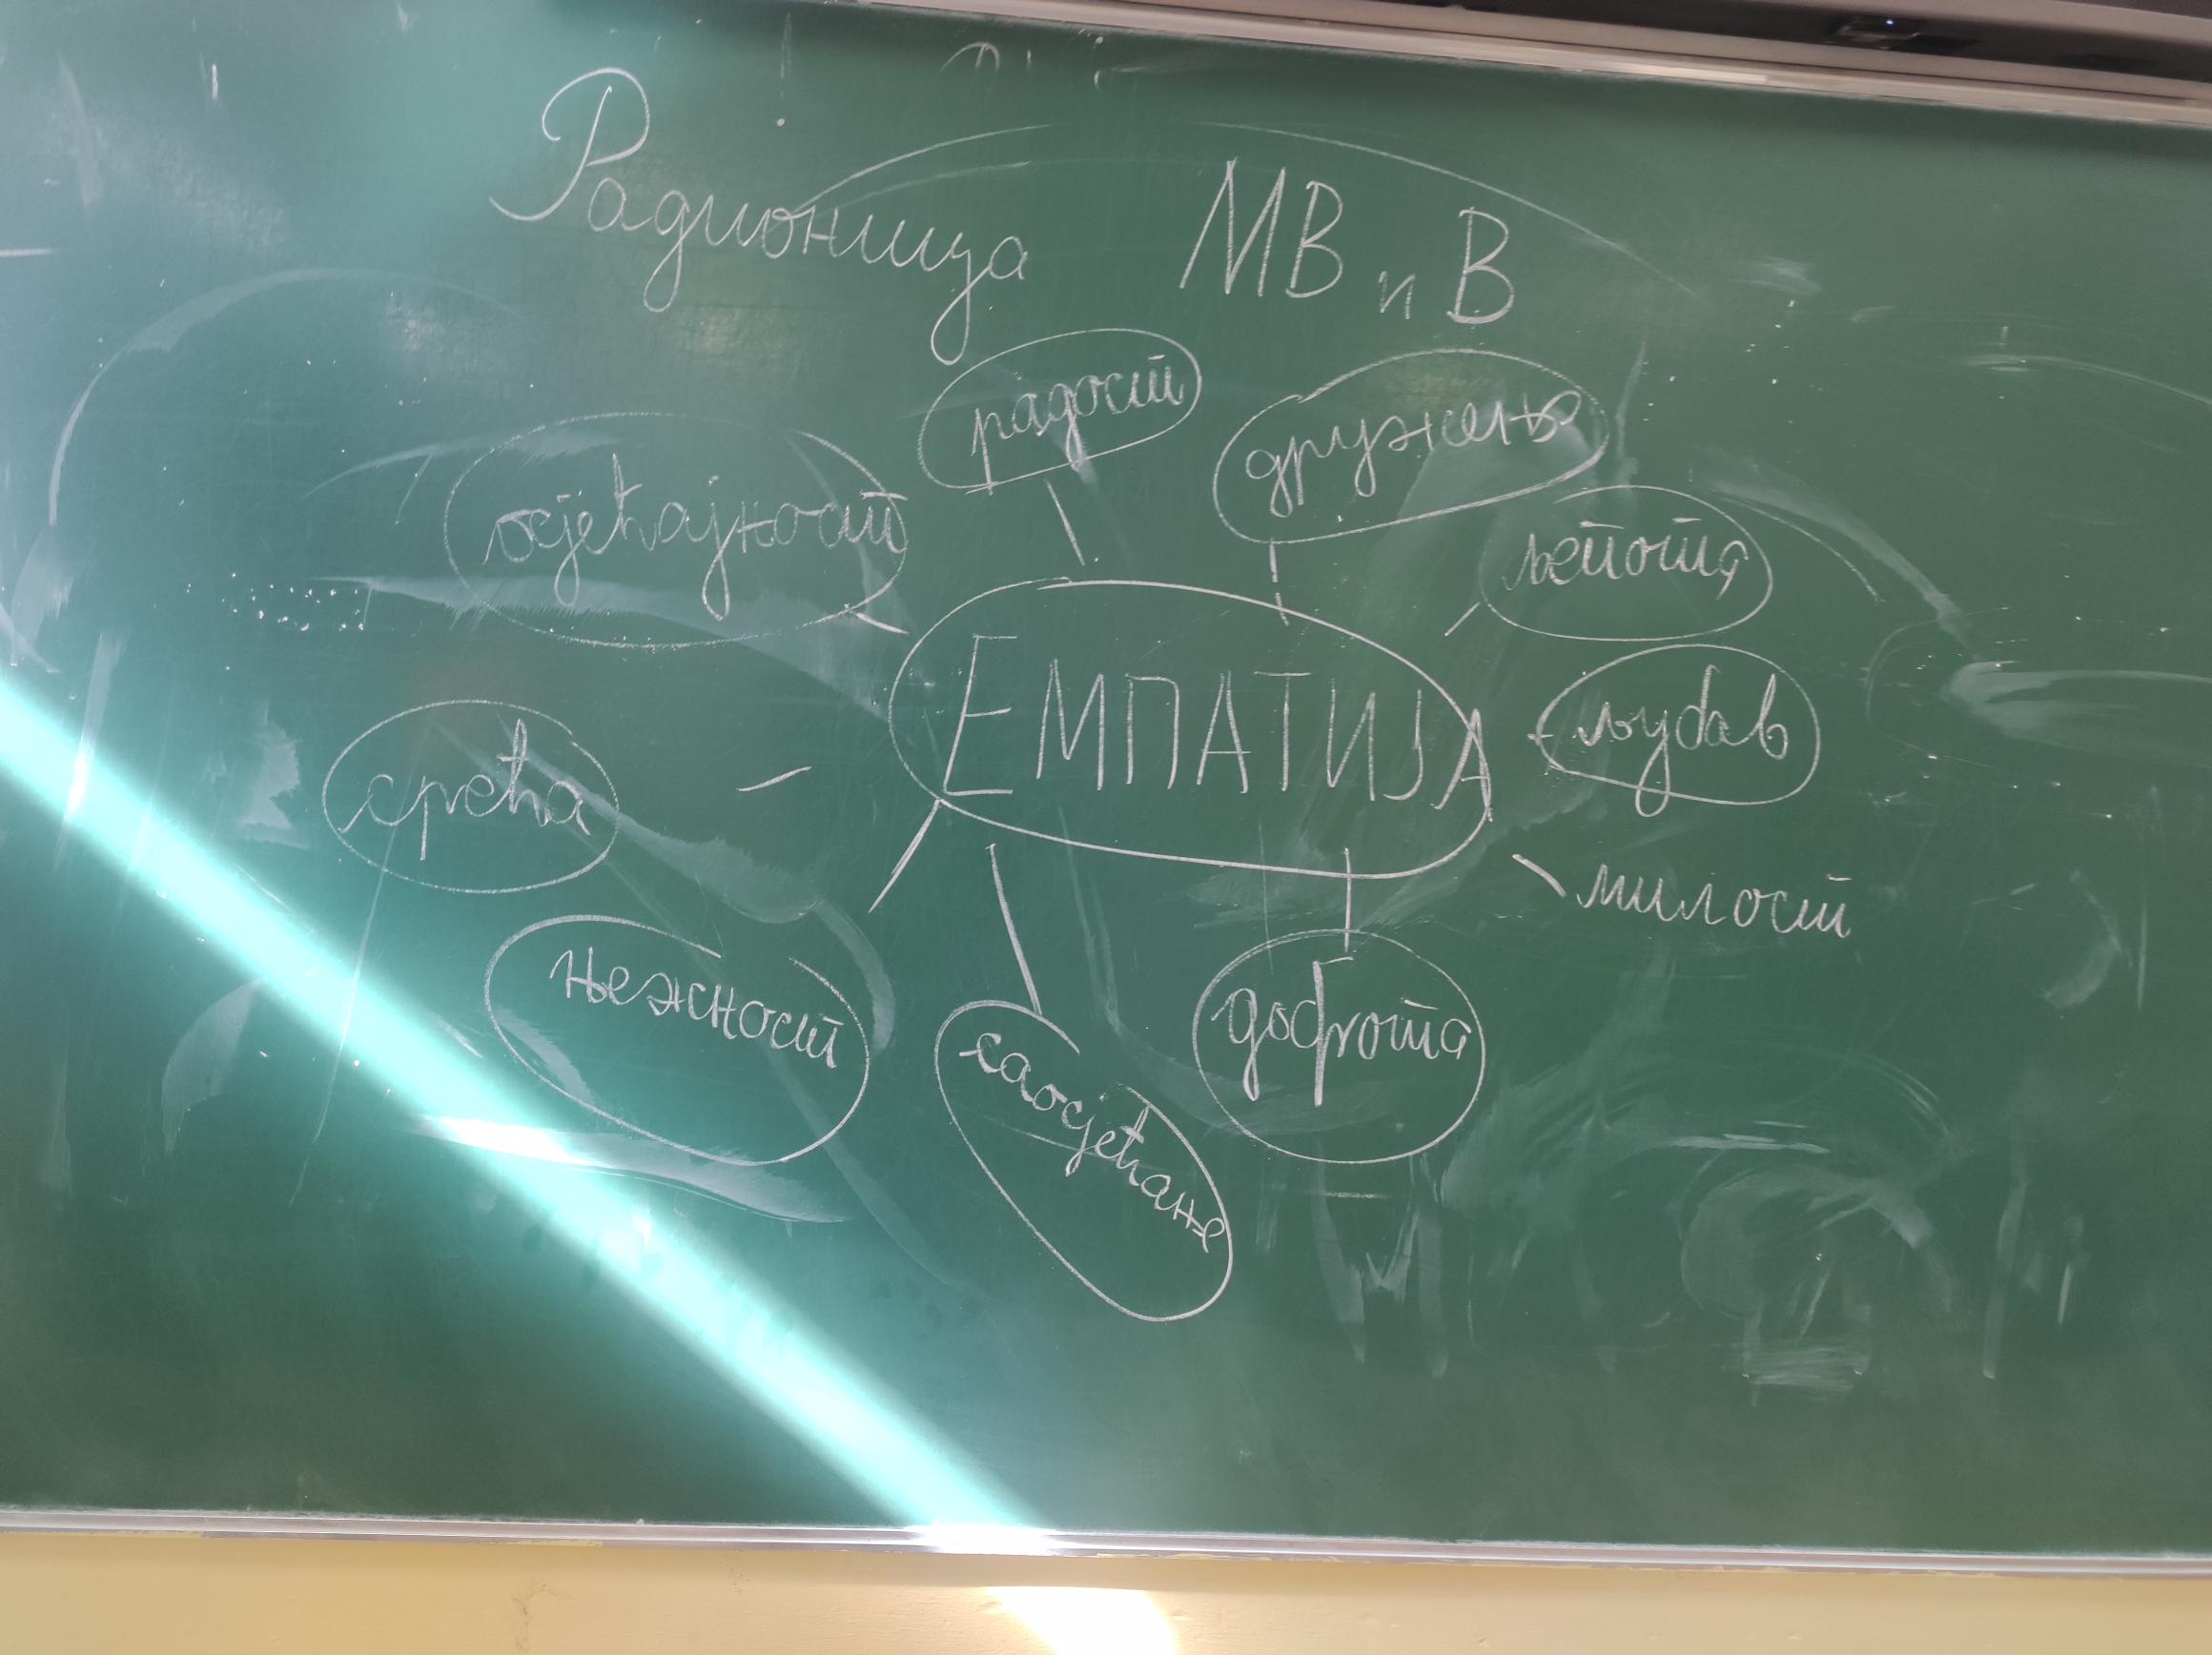 Радионица МВ и В
радост
дружење
осјећајност
љепота
ЕМПАТИЈА
љубав
срећа
милост
њежност
саосјећање
доброта